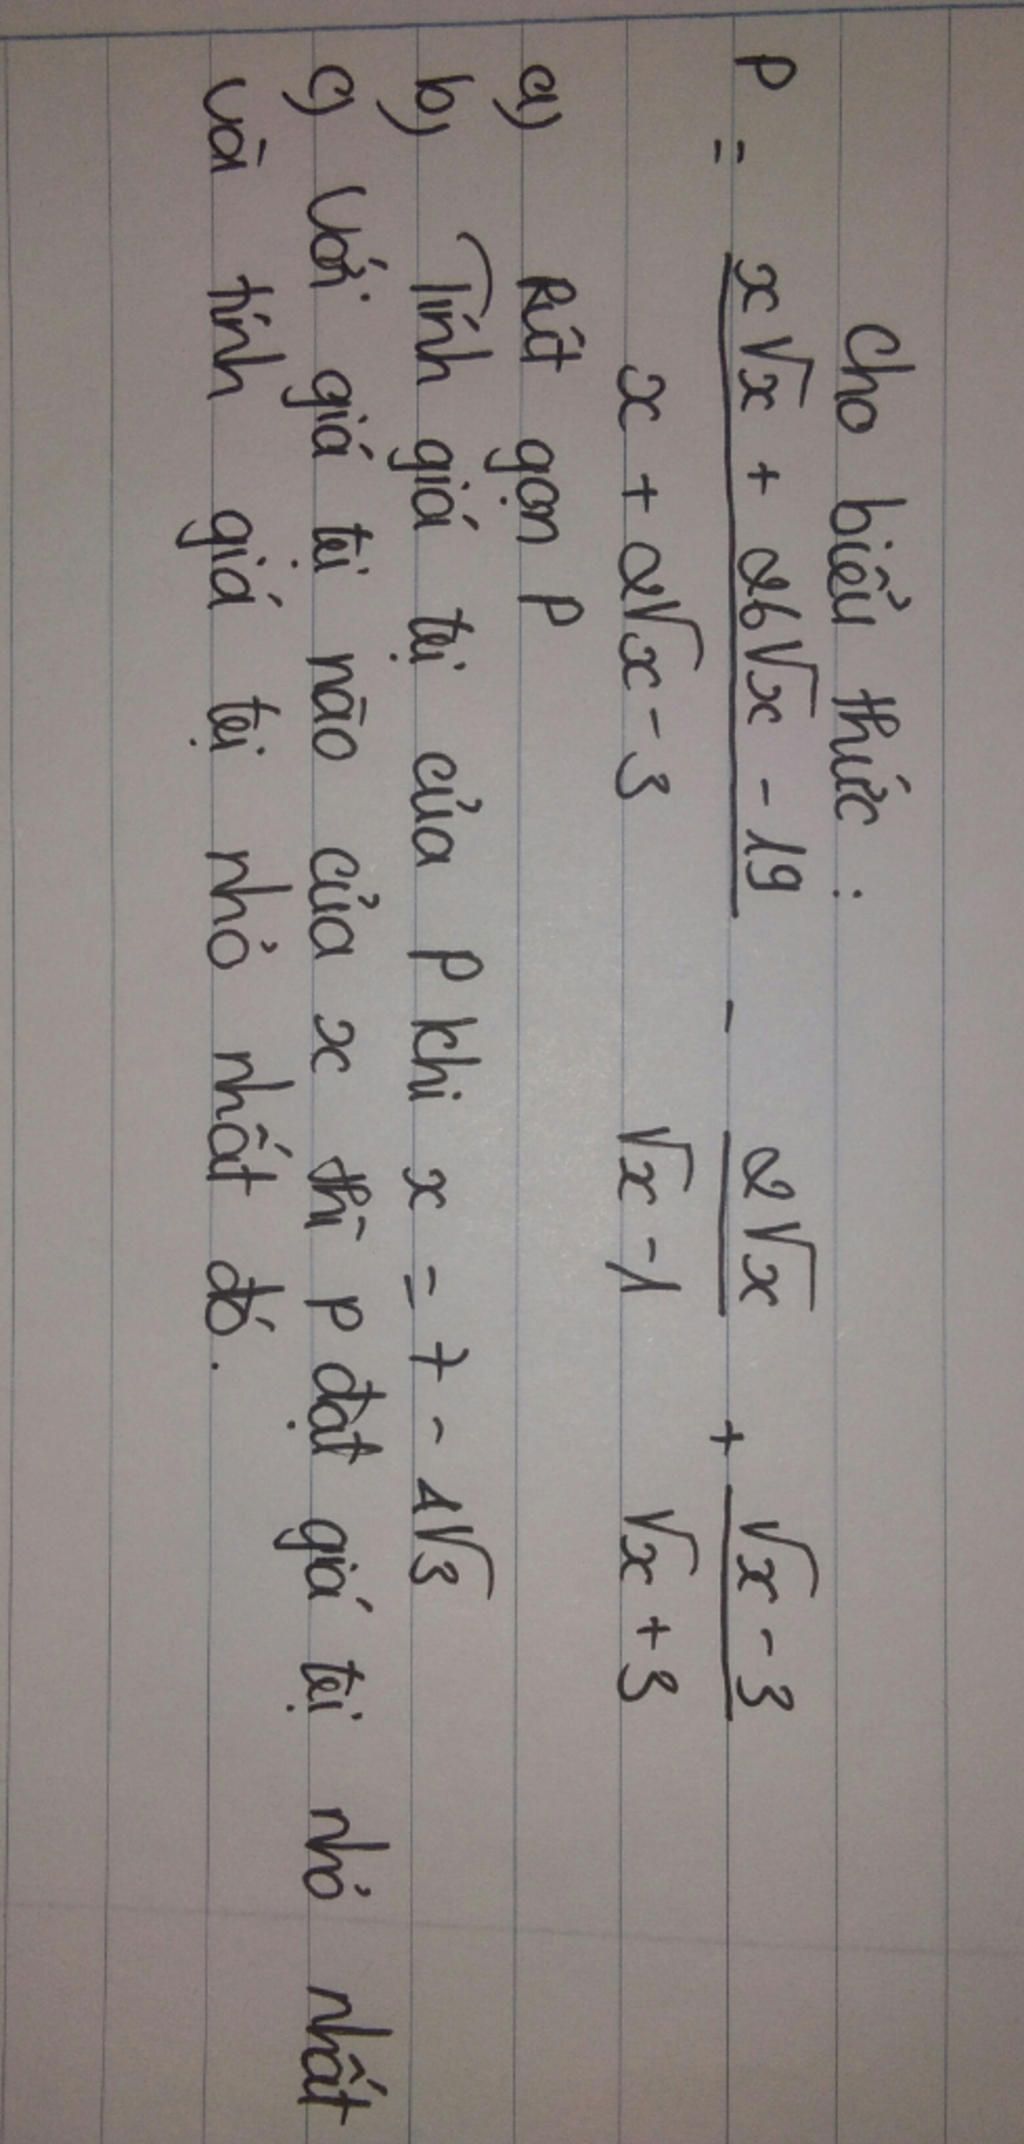 Cho biểu thức :
P = x√x + 26√x - 19 / x + 2√x - 3 - 2√x / √x - 1 + √x - 3 / √x + 3
a) Rút gọn P
b) Tính giá trị của P khi x = 7 - 4√3
c) Với giá trị nào của x thì P đạt giá trị nhỏ nhất
và tính giá trị nhỏ nhất đó.